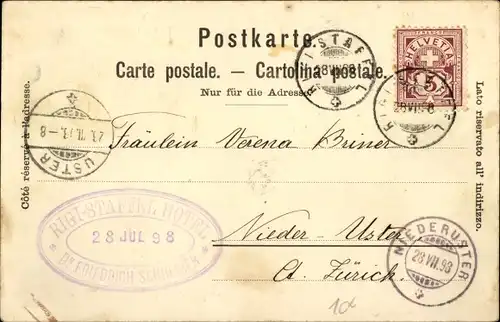 Postkarte.
Carte postale. — Cartolina postale.
Nur für die Adresse.
RIGI STAFFEL
28 VII 98
HELVETIA
5
RIGI STAFFEL
28 VII 98
Côté réservé à l'adresse.
Lato riservato all' indirizzo.
USTER
Fräulein Verena Briner
RIGI-STAFFEL HOTEL
28 JUL 98
Dr FRIEDRICH
Nieder-Uster
Ct. Zürich.
NIEDERUSTER
28 VII 98